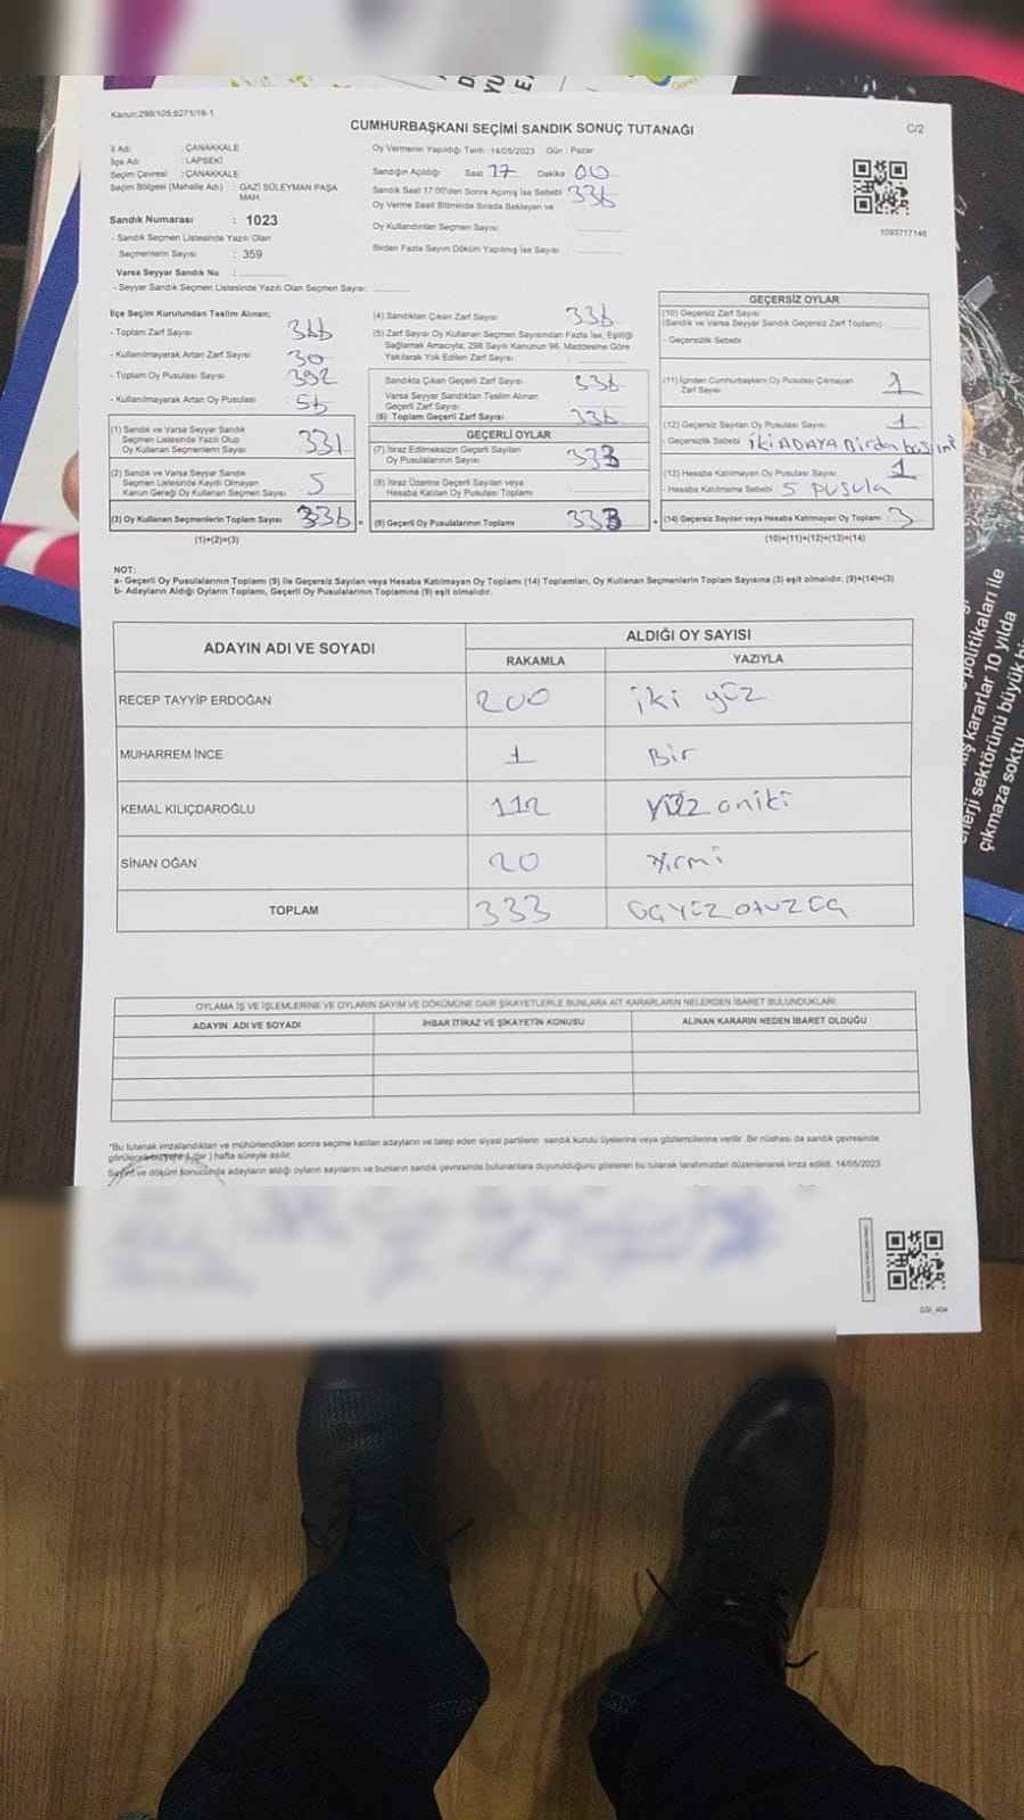 Kanun:298/105;6271/18-1
CUMHURBAŞKANI SEÇİMİ SANDIK SONUÇ TUTANAĞI
C/2
İl Adı : ÇANAKKALE
İlçe Adı : LAPSEKİ
Seçim Çevresi : ÇANAKKALE
Seçim Bölgesi (Mahalle Adı) : GAZİ SÜLEYMAN PAŞA
MAH.
Sandık Numarası : 1023
- Sandık Seçmen Listesinde Yazılı Olan
Seçmenlerin Sayısı : 359
Varsa Seyyar Sandık No :
- Seyyar Sandık Seçmen Listesinde Yazılı Olan Seçmen Sayısı:
Oy Vermenin Yapıldığı Tarih : 14/05/2023 Gün : Pazar
Sandığın Açıldığı Saat 17 Dakika 00
Sandık Saat 17:00'den Sonra Açılmış İse Sebebi 336
Oy Verme Saati Bitiminde Sırada Bekleyen ve
Oy Kullandırılan Seçmen Sayısı
Birden Fazla Sayım Döküm Yapılmış İse Sayısı
1093717146
İlçe Seçim Kurulundan Teslim Alınan;
- Toplam Zarf Sayısı 366
- Kullanılmayarak Artan Zarf Sayısı 30
- Toplam Oy Pusulası Sayısı 392
- Kullanılmayarak Artan Oy Pusulası 56
(1) Sandık ve Varsa Seyyar Sandık
Seçmen Listesinde Yazılı Olup
Oy Kullanan Seçmenlerin Sayısı 331
(2) Sandık ve Varsa Seyyar Sandık
Seçmen Listesinde Kayıtlı Olmayan
Kanun Gereği Oy Kullanan Seçmen Sayısı 5
(3) Oy Kullanan Seçmenlerin Toplam Sayısı 336 =
(1)+(2)=(3)
(4) Sandıktan Çıkan Zarf Sayısı 336
(5) Zarf Sayısı Oy Kullanan Seçmen Sayısından Fazla İse, Eşitliği
Sağlamak Amacıyla; 298 Sayılı Kanunun 98. Maddesine Göre
Yakılarak Yok Edilen Zarf Sayısı
Sandıkta Çıkan Geçerli Zarf Sayısı 336
Varsa Seyyar Sandıktan Teslim Alınan
Geçerli Zarf Sayısı
(6) Toplam Geçerli Zarf Sayısı 336
GEÇERLİ OYLAR
(7) İtiraz Edilmeksizin Geçerli Sayılan
Oy Pusulalarının Sayısı 333
(8) İtiraz Üzerine Geçerli Sayılan veya
Hesaba Katılan Oy Pusulası Toplamı
(9) Geçerli Oy Pusulalarının Toplamı 333 +
GEÇERSİZ OYLAR
(10) Geçersiz Zarf Sayısı
(Sandık ve Varsa Seyyar Sandık Geçersiz Zarf Toplamı)
- Geçersizlik Sebebi
(11) İçinden Cumhurbaşkanı Oy Pusulası Çıkmayan
Zarf Sayısı 1
(12) Geçersiz Sayılan Oy Pusulası Sayısı 1
- Geçersizlik Sebebi iki ADAYA Birden
(13) Hesaba Katılmayan Oy Pusulası Sayısı 1
- Hesaba Katılmama Sebebi 5 pusula
(14) Geçersiz Sayılan veya Hesaba Katılmayan Oy Toplamı 3
(10)+(11)+(12)+(13)=(14)
NOT:
a- Geçerli Oy Pusulalarının Toplamı (9) ile Geçersiz Sayılan veya Hesaba Katılmayan Oy Toplamı (14) Toplamları, Oy Kullanan Seçmenlerin Toplam Sayısına (3) eşit olmalıdır. (9)+(14)=(3)
b- Adayların Aldığı Oyların Toplamı, Geçerli Oy Pusulalarının Toplamına (9) eşit olmalıdır.
ADAYIN ADI VE SOYADI
ALDIĞI OY SAYISI
RAKAMLA YAZIYLA
RECEP TAYYİP ERDOĞAN 200 iki yüz
MUHARREM İNCE 1 Bir
KEMAL KILIÇDAROĞLU 112 Yüz oniki
SİNAN OĞAN 20 Yirmi
TOPLAM 333 üçyüz otuz üç
OYLAMA İŞ VE İŞLEMLERİNE VE OYLARIN SAYIM VE DÖKÜMÜNE DAİR ŞİKAYETLERLE BUNLARA AİT KARARLARIN NELERDEN İBARET BULUNDUKLARI
ADAYIN ADI VE SOYADI İHBAR İTİRAZ VE ŞİKAYETİN KONUSU ALINAN KARARIN NEDEN İBARET OLDUĞU
*Bu tutanak imzalandıktan ve mühürlendikten sonra seçime katılan adayların ve talep eden siyasi partilerin sandık kurulu üyelerine veya gözlemcilerine verilir. Bir nüshası da sandık çevresinde
hafta süreyle asılır.
Sayım ve döküm sonucunda adayların aldığı oyların sayılarını ve bunların sandık çevresinde bulunanlara duyurulduğunu gösteren bu tutanak tarafımızdan düzenlenerek imza edildi. 14/05/2023
politikaları ile
kararlar 10 yılda
enerji sektörünü büyük bir
çıkmaza soktu